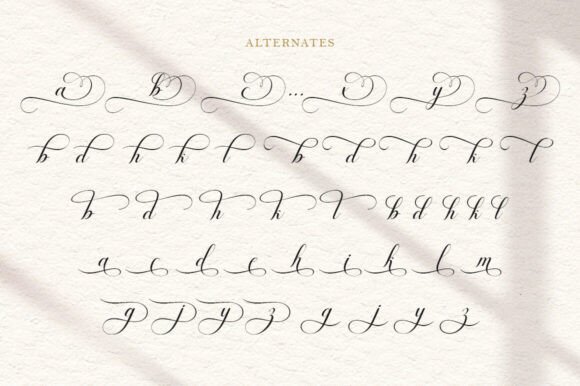 ALTERNATES
a b c ... x y z
b d h k l b d h k l
b d h k l b d h k l
a c d e h i k l m
g j y z g j y z